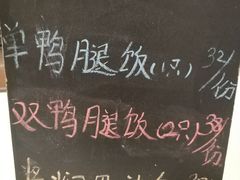 单鸭腿饭(1只) 32/份
双鸭腿饭(2只) 38/份